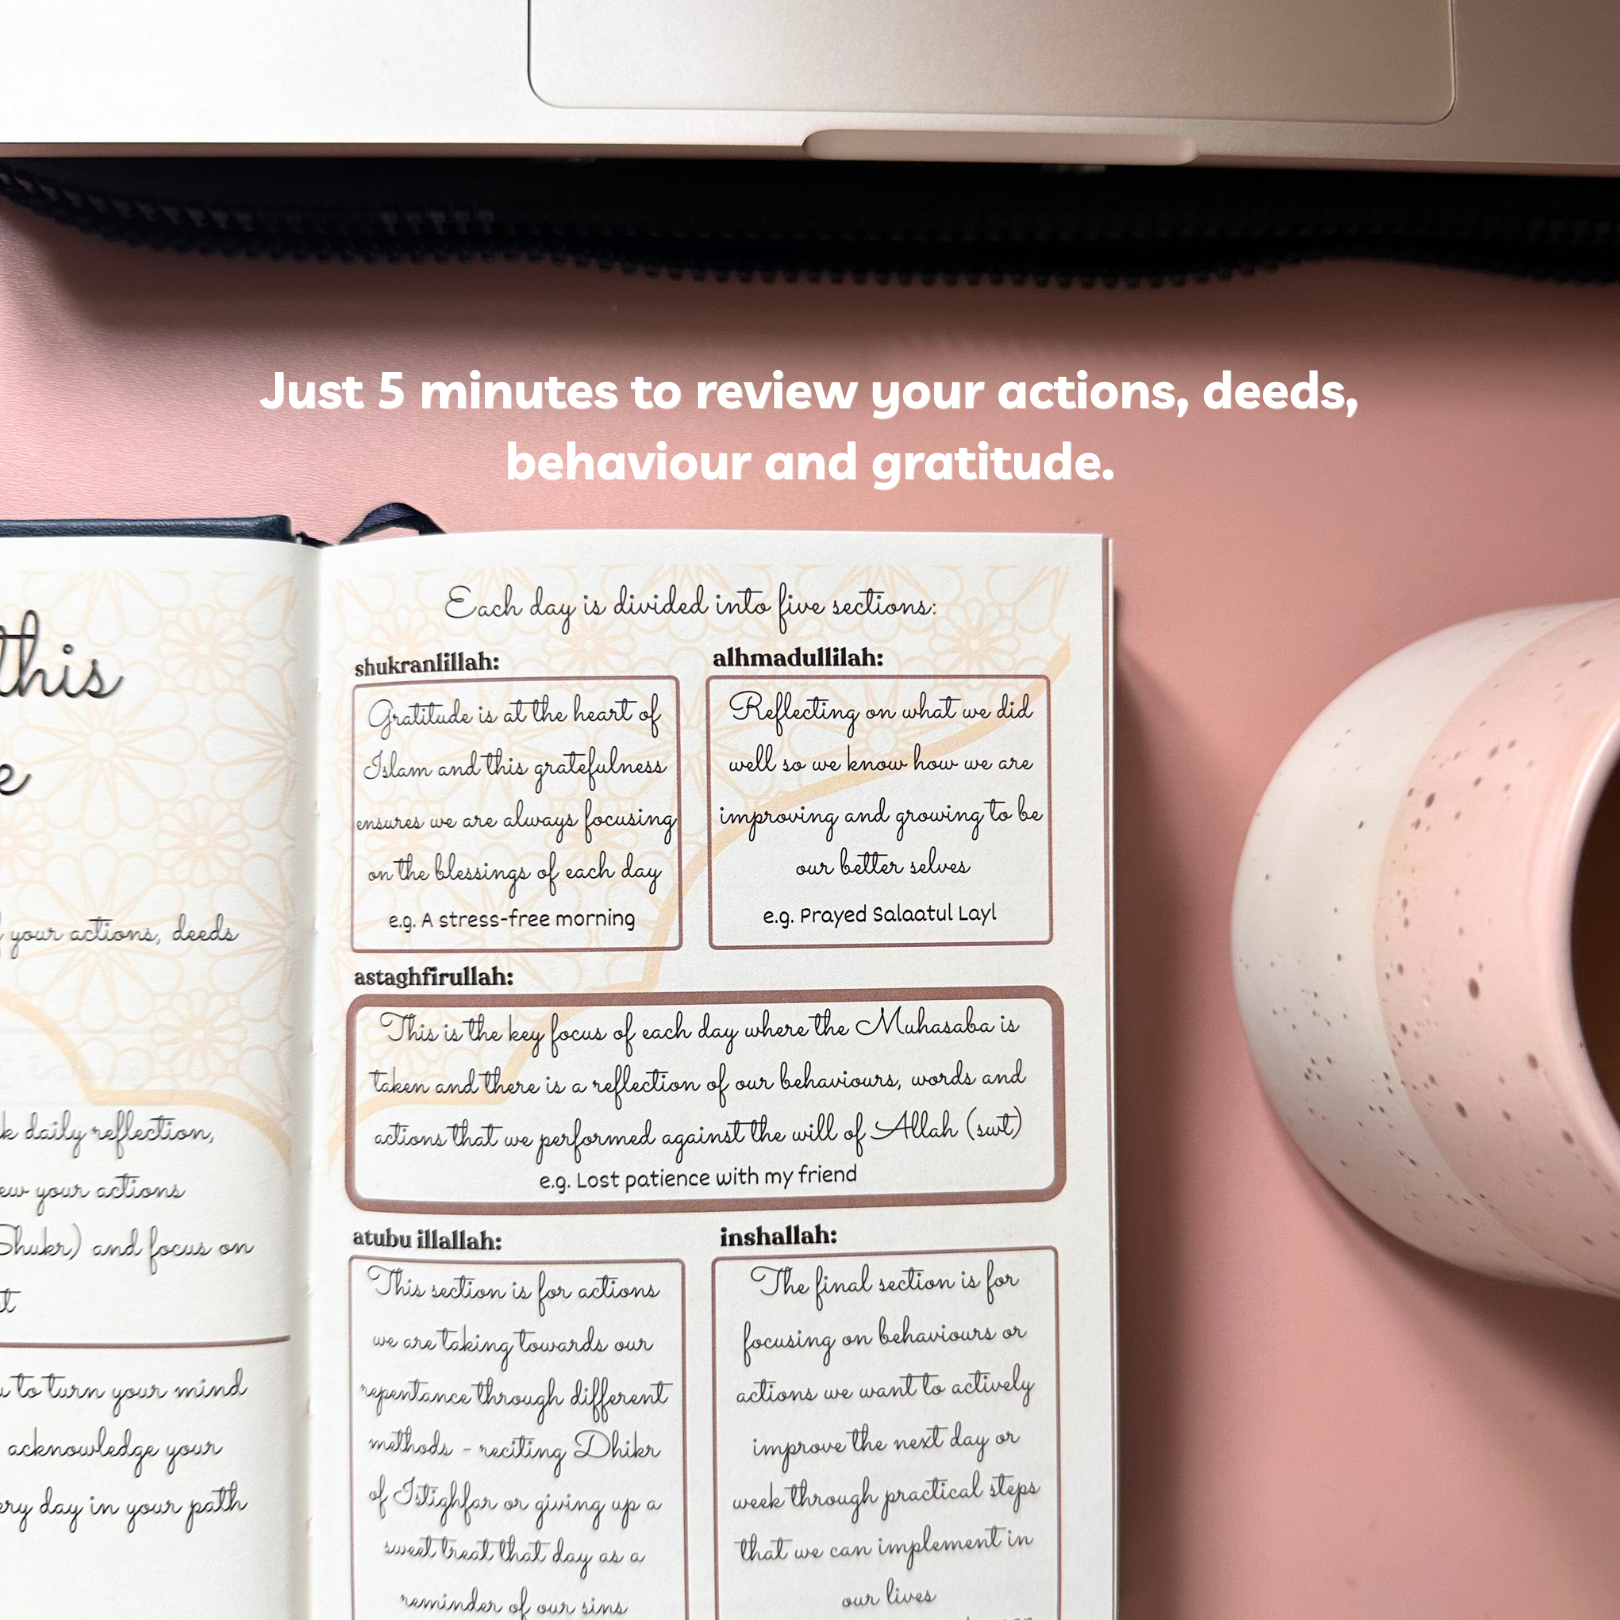 Just 5 minutes to review your actions, deeds,
behaviour and gratitude.
this
your actions, deeds
daily reflection,
your actions
Shukr) and focus on
to turn your mind
acknowledge your
day in your path
Each day is divided into five sections:
shukranlillah:
Gratitude is at the heart of
Islam and this gratefulness
ensures we are always focusing
on the blessings of each day
e.g. A stress-free morning
alhmadullilah:
Reflecting on what we did
well so we know how we are
improving and growing to be
our better selves
e.g. Prayed Salaatul Layl
astaghfirullah:
This is the key focus of each day where the Muhasaba is
taken and there is a reflection of our behaviours, words and
actions that we performed against the will of Allah (swt)
e.g. Lost patience with my friend
atubu illallah:
This section is for actions
we are taking towards our
repentance through different
methods - reciting Dhikr
of Istighfar or giving up a
sweet treat that day as a
reminder of our sins
inshallah:
The final section is for
focusing on behaviours or
actions we want to actively
improve the next day or
week through practical steps
that we can implement in
our lives